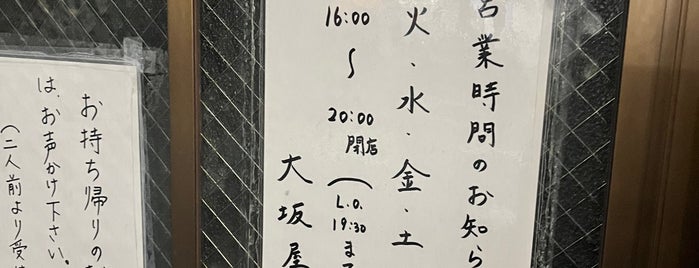 営業時間のお知ら
火・水・金・土
16:00
〜
20:00
閉店
(L.O.
19:30
まで
大坂屋
お持ち帰りの
は、お声かけ下さい。
(二人前より受